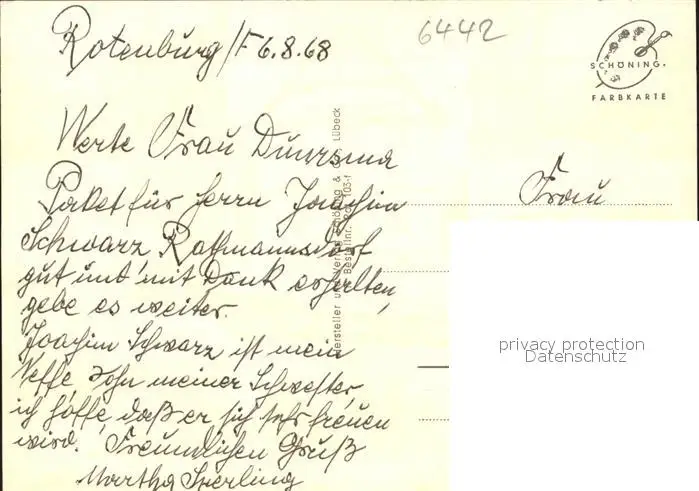 Rotenburg/F 6.8.68
6442
SCHÖNING.
FARBKARTE
Werte Frau Duursma
Paket für Herrn Joachim
Schwarz, Rathmannsdorf
gut und mit Dank erhalten,
gebe es weiter.
Joachim Schwarz ist mein
Neffe, Sohn meiner Schwester,
ich hoffe, daß er sich sehr freuen
wird. Freundlichen Gruß
Martha Sperling
Hersteller und Verlag Schöning & Lübeck
Bestellnr. 103
Frau
privacy protection
Datenschutz